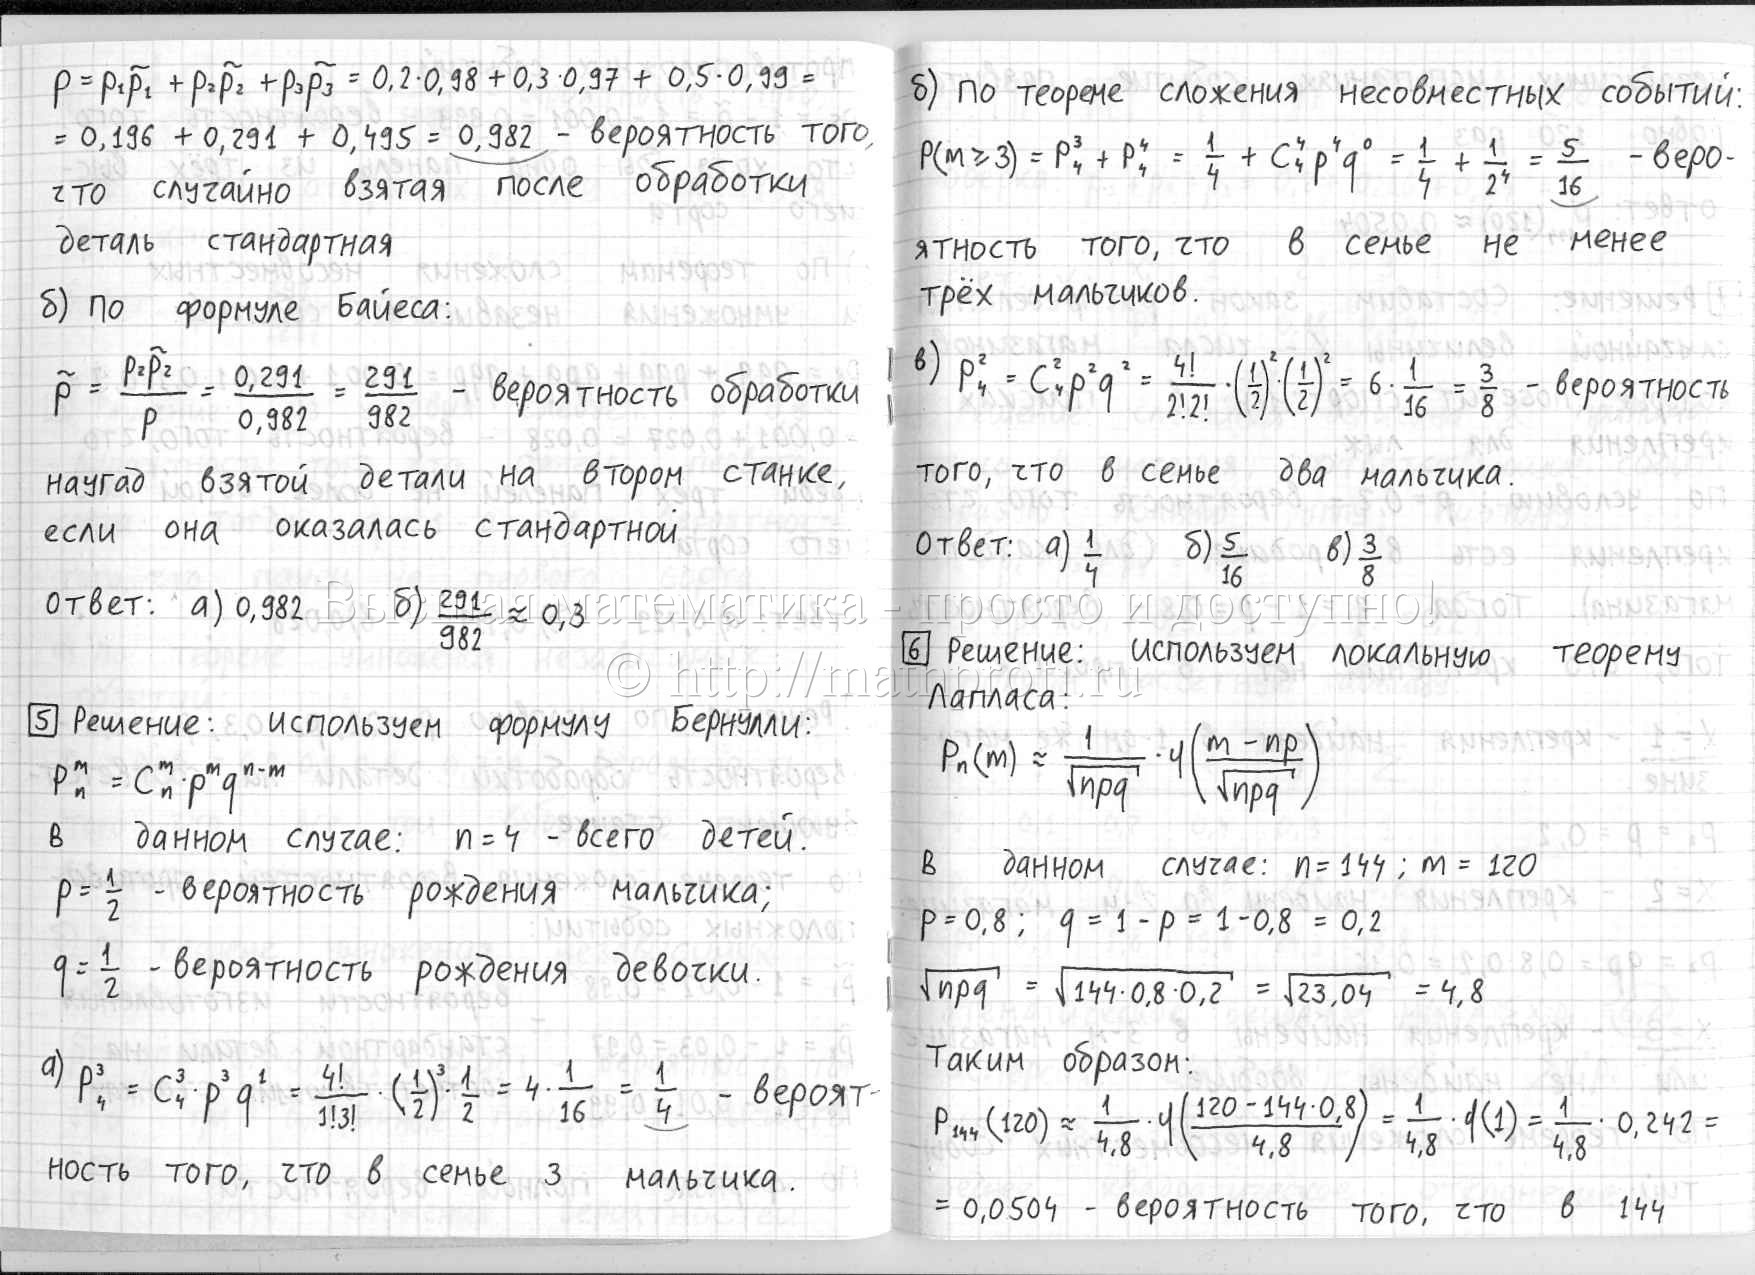 p = p₁p̃₁ + p₂p̃₂ + p₃p̃₃ = 0,2·0,98 + 0,3·0,97 + 0,5·0,99 =
= 0,196 + 0,291 + 0,495 = 0,982 – вероятность того,
что случайно взятая после обработки
деталь стандартная
б) По формуле Байеса:
p̃ = p₂p̃₂/p = 0,291/0,982 = 291/982 – вероятность обработки
наугад взятой детали на втором станке,
если она оказалась стандартной
Ответ: а) 0,982 б) 291/982 ≈ 0,3
5 Решение: используем формулу Бернулли:
Pₙᵐ = Cₙᵐ·pᵐqⁿ⁻ᵐ
В данном случае: n = 4 – всего детей.
p = 1/2 – вероятность рождения мальчика;
q = 1/2 – вероятность рождения девочки.
а) P₄³ = C₄³·p³q¹ = 4!/(1!3!)·(1/2)³·1/2 = 4·1/16 = 1/4 – вероят-
ность того, что в семье 3 мальчика.
б) По теореме сложения несовместных событий:
P(m ⩾ 3) = P₄³ + P₄⁴ = 1/4 + C₄⁴p⁴q⁰ = 1/4 + 1/2⁴ = 5/16 – веро-
ятность того, что в семье не менее
трёх мальчиков.
в) P₄² = C₄²p²q² = 4!/(2!2!)·(1/2)²·(1/2)² = 6·1/16 = 3/8 – вероятность
того, что в семье два мальчика.
Ответ: а) 1/4 б) 5/16 в) 3/8
6 Решение: используем локальную теорему
Лапласа:
Pₙ(m) ≈ 1/√npq · φ((m – np)/√npq)
В данном случае: n = 144; m = 120
p = 0,8; q = 1 – p = 1 – 0,8 = 0,2
√npq = √144·0,8·0,2 = √23,04 = 4,8
Таким образом:
P₁₄₄(120) ≈ 1/4,8 · φ((120 – 144·0,8)/4,8) = 1/4,8 · φ(1) = 1/4,8 · 0,242 =
= 0,0504 – вероятность того, что в 144
Высшая математика - просто и доступно!
© http://mathprofi.ru